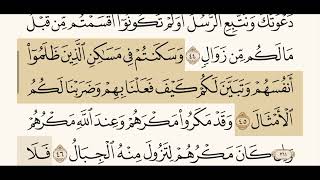 دَعْوَتَكَ وَنَتَّبِعِ ٱلرُّسُلَ أَوَلَمْ تَكُونُوٓا۟ أَقْسَمْتُم مِّن قَبْلُ
مَا لَكُم مِّن زَوَالٍ ٤٤ وَسَكَنتُمْ فِى مَسَٰكِنِ ٱلَّذِينَ ظَلَمُوٓا۟
أَنفُسَهُمْ وَتَبَيَّنَ لَكُمْ كَيْفَ فَعَلْنَا بِهِمْ وَضَرَبْنَا لَكُمُ
ٱلْأَمْثَالَ ٤٥ وَقَدْ مَكَرُوا۟ مَكْرَهُمْ وَعِندَ ٱللَّهِ مَكْرُهُمْ
كَانَ مَكْرُهُمْ لِتَزُولَ مِنْهُ ٱلْجِبَالُ ٤٦ فَلَا